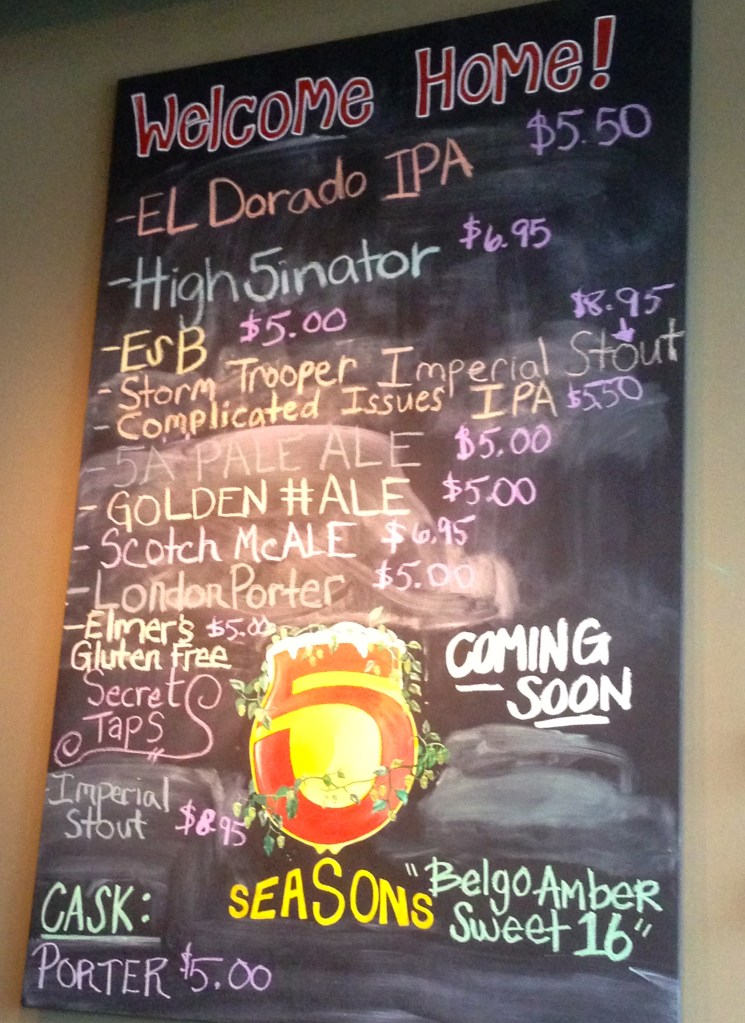 Welcome Home!
-EL Dorado IPA $5.50
-High5inator $6.95
-EsB $5.00
$8.95
-Storm Trooper Imperial Stout
-Complicated Issues IPA $5.50
-5A PALE ALE $5.00
-GOLDEN #ALE $5.00
-Scotch McALE $6.95
-London Porter $5.00
-Elmer's $5.00
Gluten Free
Secret
Taps
COMING
SOON
5
Imperial
Stout $8.95
SEASONS
"Belgo Amber
Sweet 16"
CASK:
PORTER $5.00